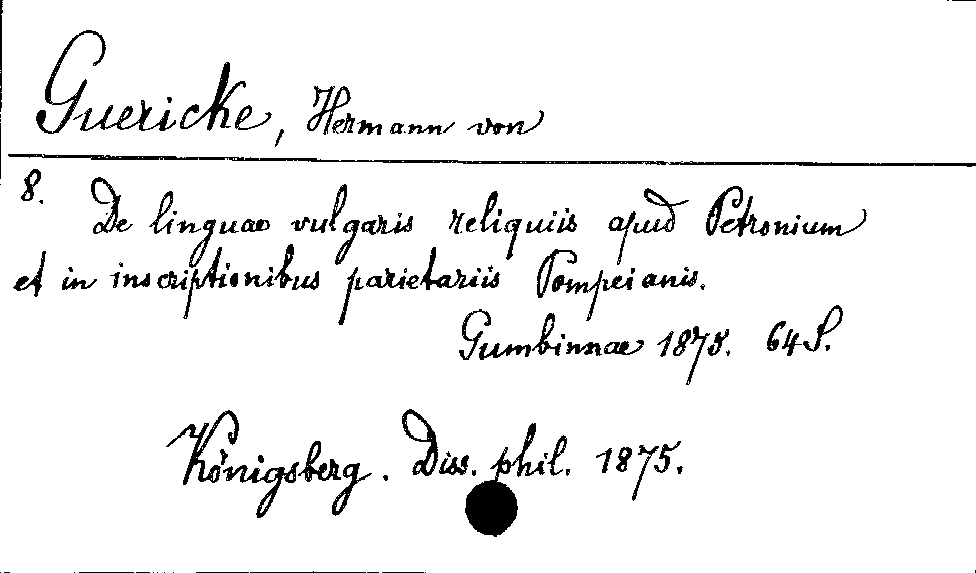 Guericke, Hermann von
8. De linguae vulgaris reliquiis apud Petronium
et in inscriptionibus parietariis Pompeianis.
Gumbinnae 1875. 64 S.
Königsberg. Diss. phil. 1875.